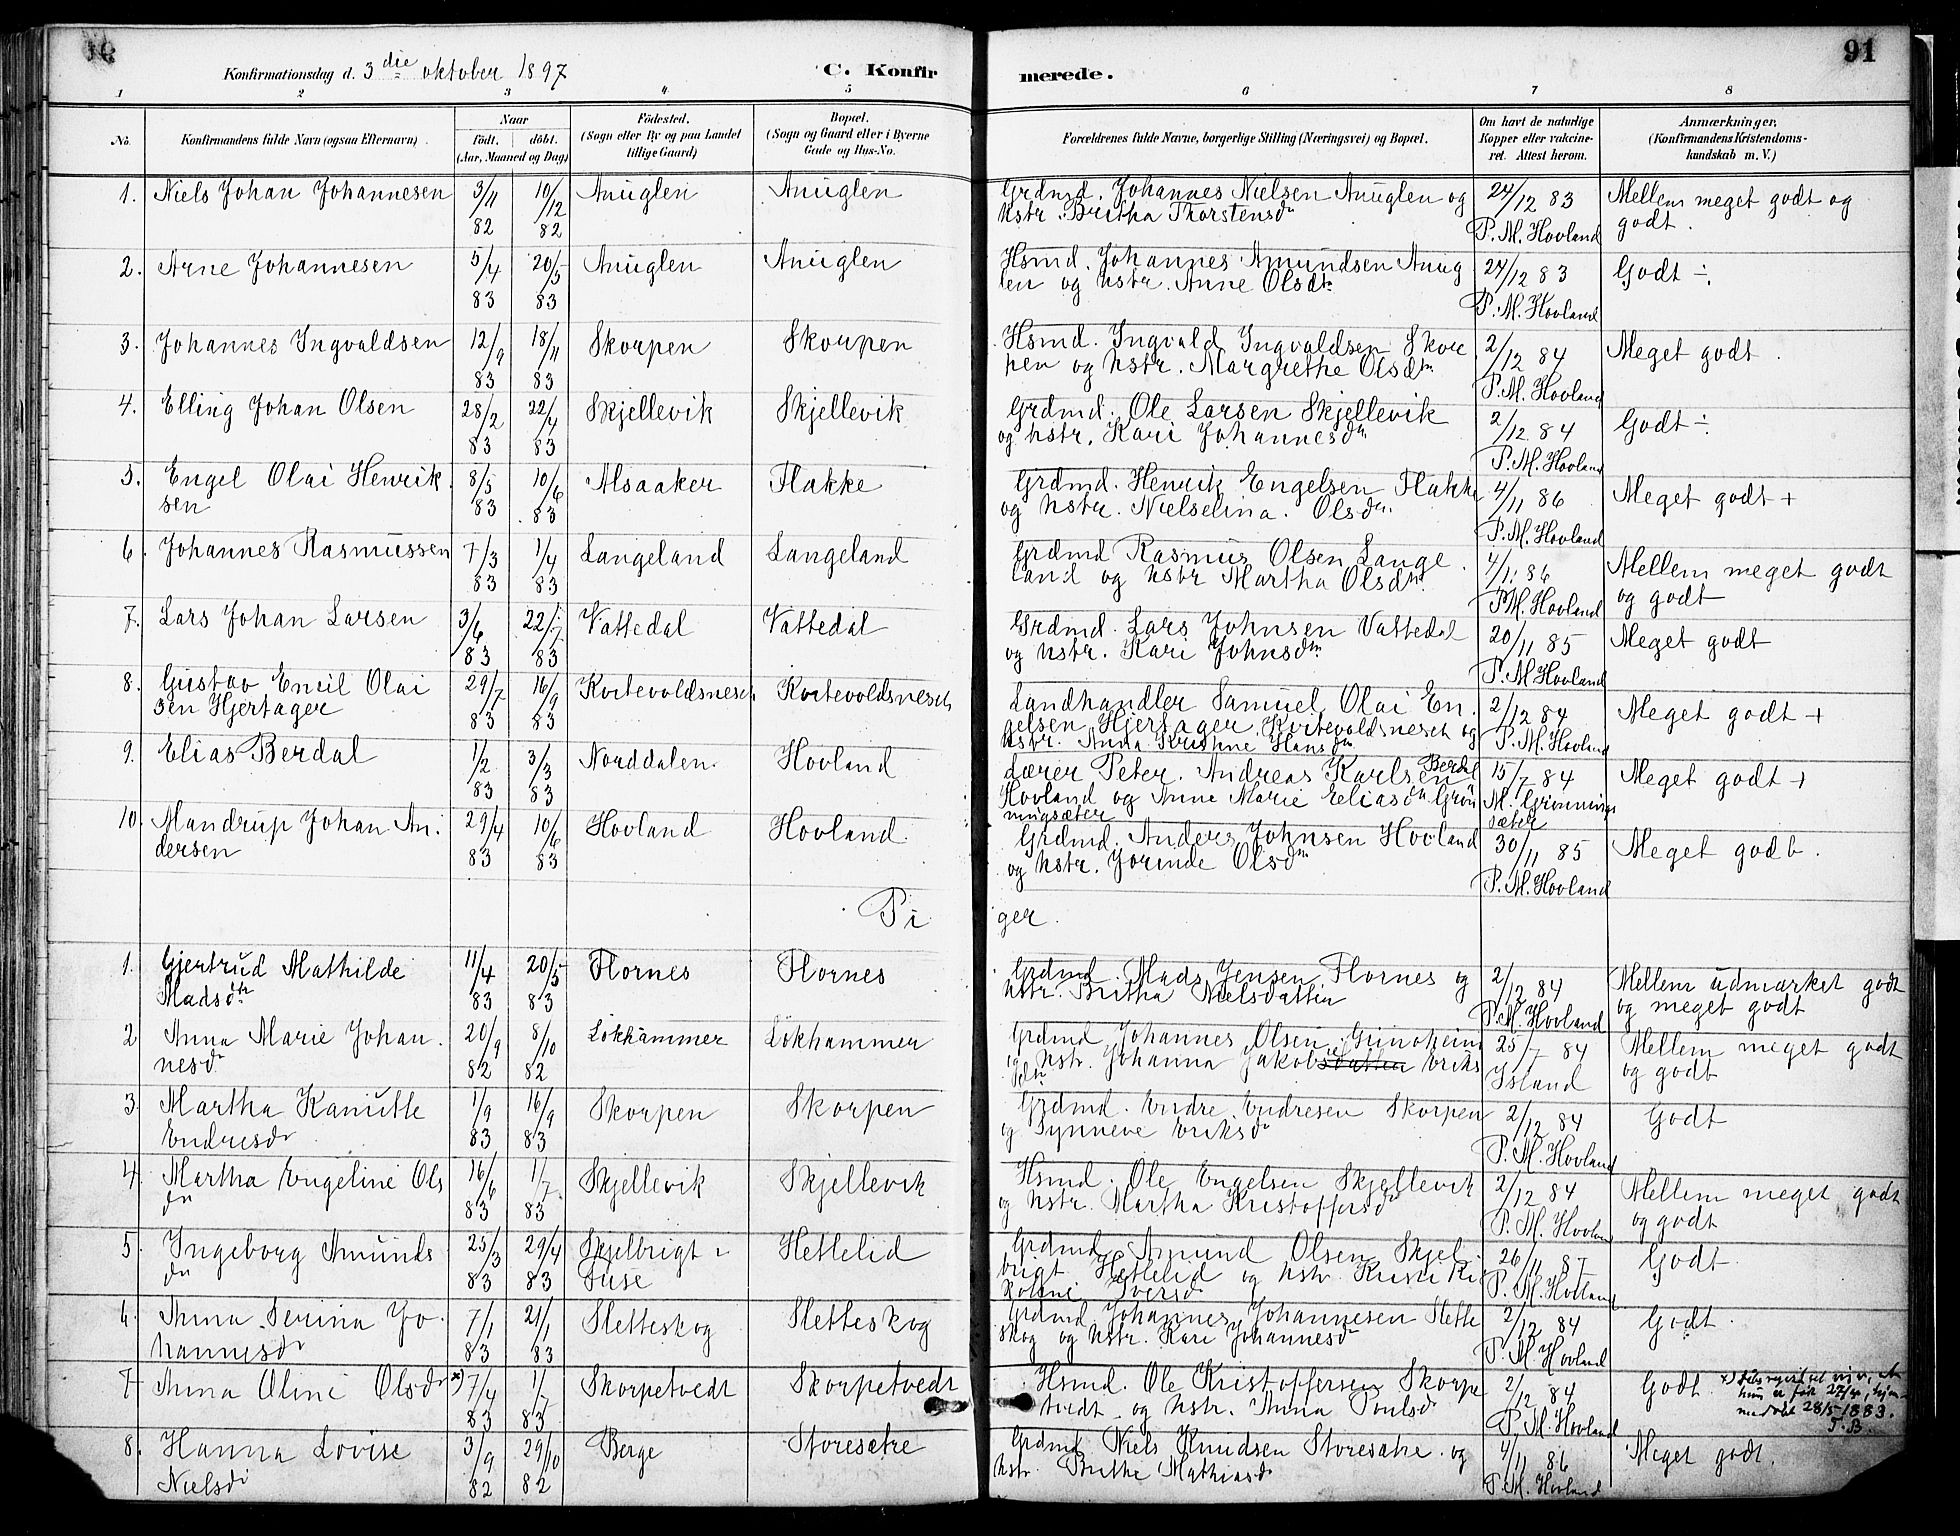 91
Konfirmationsdag d. 3 die oktober 1897
C. Konfirmerede.
1 2 3 4 5 6 7 8
No.
Konfirmandens fulde Navn (ogsaa Efternavn)
Naar
født. døbt.
(Aar, Maaned og Dag)
Fødested.
(Sogn eller By og paa Landet
tillige Gaard)
Bopæl.
(Sogn og Gaard eller i Byerne
Gade og Hus-No.
Forældrenes fulde Navne, borgerlige Stilling (Næringsvei) og Bopæl.
Om havt de naturlige
Kopper eller vakcine-
ret. Attest herom.
Anmærkninger,
(Konfirmandens Kristendoms-
kundskab m. V.)
1. Niels Johan Johannesen 3/11 82 10/12 82 Anuglen Anuglen Grdmd. Johannes Nielsen Anuglen og
hstr. Britha Thorstensdr 24/12 83 P. M. Hovland Mellem meget godt og
godt.
2. Arne Johannesen 5/4 83 20/5 83 Anuglen Anuglen Hsmd. Johannes Amundsen Anug
len og hstr. Anne Olsdtr 24/12 83 P. M. Hovland Godt ÷
3. Johannes Ingvaldsen 12/9 83 18/11 83 Skorpen Skorpen Hsmd. Ingvald Ingvaldsen Skor
pen og hstr. Margrethe Olsdtr 2/12 84 P. M. Hovland Meget godt.
4. Elling Johan Olsen 28/2 83 22/4 83 Skjellevik Skjellevik Grdmd. Ole Larsen Skjellevik
og hstr. Kari Johannesdtr 2/12 84 P. M. Hovland Godt ÷
5. Engel Olai Henrik
sen 8/5 83 10/6 83 Alsaaker Flakke Grdmd. Henrik Engelsen Flakke
og hstr. Nielselina Olsdtr. 4/11 86 P. M. Hovland Meget godt +
6. Johannes Rasmussen 7/3 83 1/4 83 Langeland Langeland Grdmd Rasmus Olsen Lange
land og hstr Martha Olsdtr. 4/11 86 P. M. Hovland Mellem meget godt
og godt
7. Lars Johan Larsen 3/6 83 22/7 83 Vattedal Vattedal Grdmd. Lars Johnsen Vattedal
og hstr. Kari Johnsdtr 20/11 85 P. M. Hovland Meget godt
8. Gustav Emil Olai
sen Hjertager 29/7 83 16/9 83 Kvitevoldsneset Kvitevoldsneset Landhandler Samuel Olai En
gelsen Hjertager, Kvitevoldsneset og
hstr. Anna Kristine Hansdtr 2/12 84 P. M. Hovland Meget godt +
9. Elias Berdal 1/2 83 3/3 83 Norddalen Hovland Lærer Peter Andreas Karlsen Berdal
Hovland og Anne Marie Eliasdtr Grøn
ningsæter 15/7 84 M. Grønnings
sæter Meget godt +
10. Mandrup Johan An
dersen 29/4 83 10/6 83 Hovland Hovland Grdmd. Anders Johnsen Hovland
og hstr. Jorinde Olsdtr 30/11 85 P. M. Hovland Meget godt.
Piger.
1. Gjertrud Mathilde
Madsdtr 11/4 83 20/5 83 Flornes Flornes Grdmd. Mads Jensen Flornes og
hstr. Britha Nielsdatter 2/12 84 P. M. Hovland Mellem udmærket godt
og meget godt
2 Anna Marie Johan
nesdr 20/9 82 8/10 82 Lökhammer Lökhammer Grdmd Johannes Olsen
og hstr. Johanna Jakobsdatter 25/7 84 Island Mellem meget godt
og godt
3. Martha Kanutte
Endresdr 1/9 83 16/9 83 Skorpen Skorpen Grdmd. Endre Endresen Skorpen
og Synneve Eriksdr 2/12 84 P. M. Hovland Godt
4. Martha Engeline Ols
dr 16/6 83 1/7 83 Skjellevik Skjellevik Hsmd. Ole Engelsen Skjellevik
og hstr. Martha Kristoffersdr 2/12 84 P. M. Hovland Mellem meget godt
og godt
5. Ingeborg Amunds
dr 25/3 83 29/4 83 Skjelbrigt i
Fuse Hettelid Grdmd. Amund Olsen Skjel
brigt Hettelid og hstr. 26/11 87 P. M. Hovland Godt.
6. Anna Serina Jo
hannesdr 7/1 83 21/1 83 Sletteskog Sletteskog Grdmd Johannes Johannesen Slette
skog og hstr. Kari Johannesdr 2/12 84 P. M. Hovland Godt.
7 Anna Oline Olsdr x) 7/4 83 1/7 83 Skorpetvedt Skorpetvedt Hsmd. Ole Kristoffersen Skorpe
tvedt og hstr. Anna Poulsdr 2/12 84 P. M. Hovland Godt x)
hun er født 27/4, hjem-
medøbt 28/5 1883.
8. Hanna Lovise
Nielsdr 3/9 82 29/10 82 Berge Storesætre Grdmd Niels Knudsen Storesætre og
hstr. Brithe Mathiasdr 4/11 86 P. M. Hovland Meget godt.